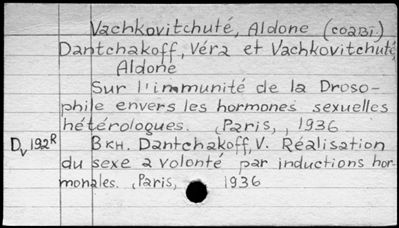 Vachkovitchuté, Aldone (СОАВТ.)
Dantchakoff, Véra et Vachkovitchuté,
Aldone
Sur l'immunité de la Droso-
phile envers les hormones sexuelles
hétérologues. (Paris,, 1936
Dv 192R В кн. Dantchakoff, V. Réalisation
du sexe a volonté par inductions hor-
monales. (Paris, 1936